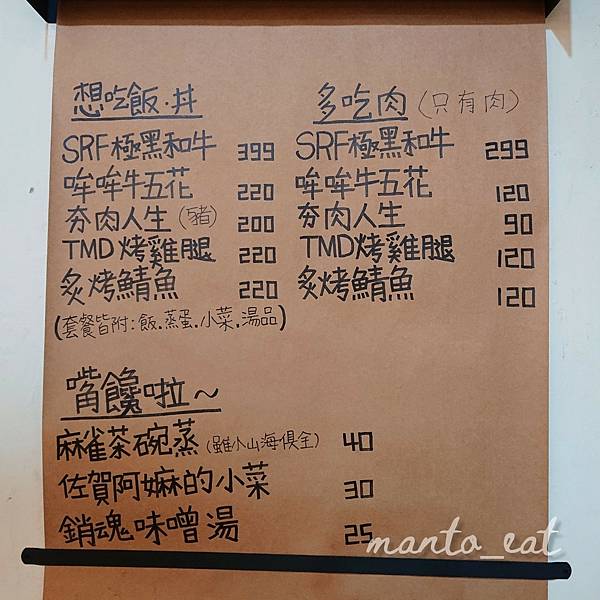 想吃飯·丼
SRF極黑和牛 399
哞哞牛五花 220
夯肉人生(豬) 200
TMD烤雞腿 220
炙烤鯖魚 220
(套餐皆附:飯.蒸蛋.小菜.湯品)
多吃肉(只有肉)
SRF極黑和牛 299
哞哞牛五花 120
夯肉人生 90
TMD烤雞腿 120
炙烤鯖魚 120
嘴饞啦~
麻雀茶碗蒸(雖小山海俱全) 40
佐賀阿嬤的小菜 30
銷魂味噌湯 25
manto_eat